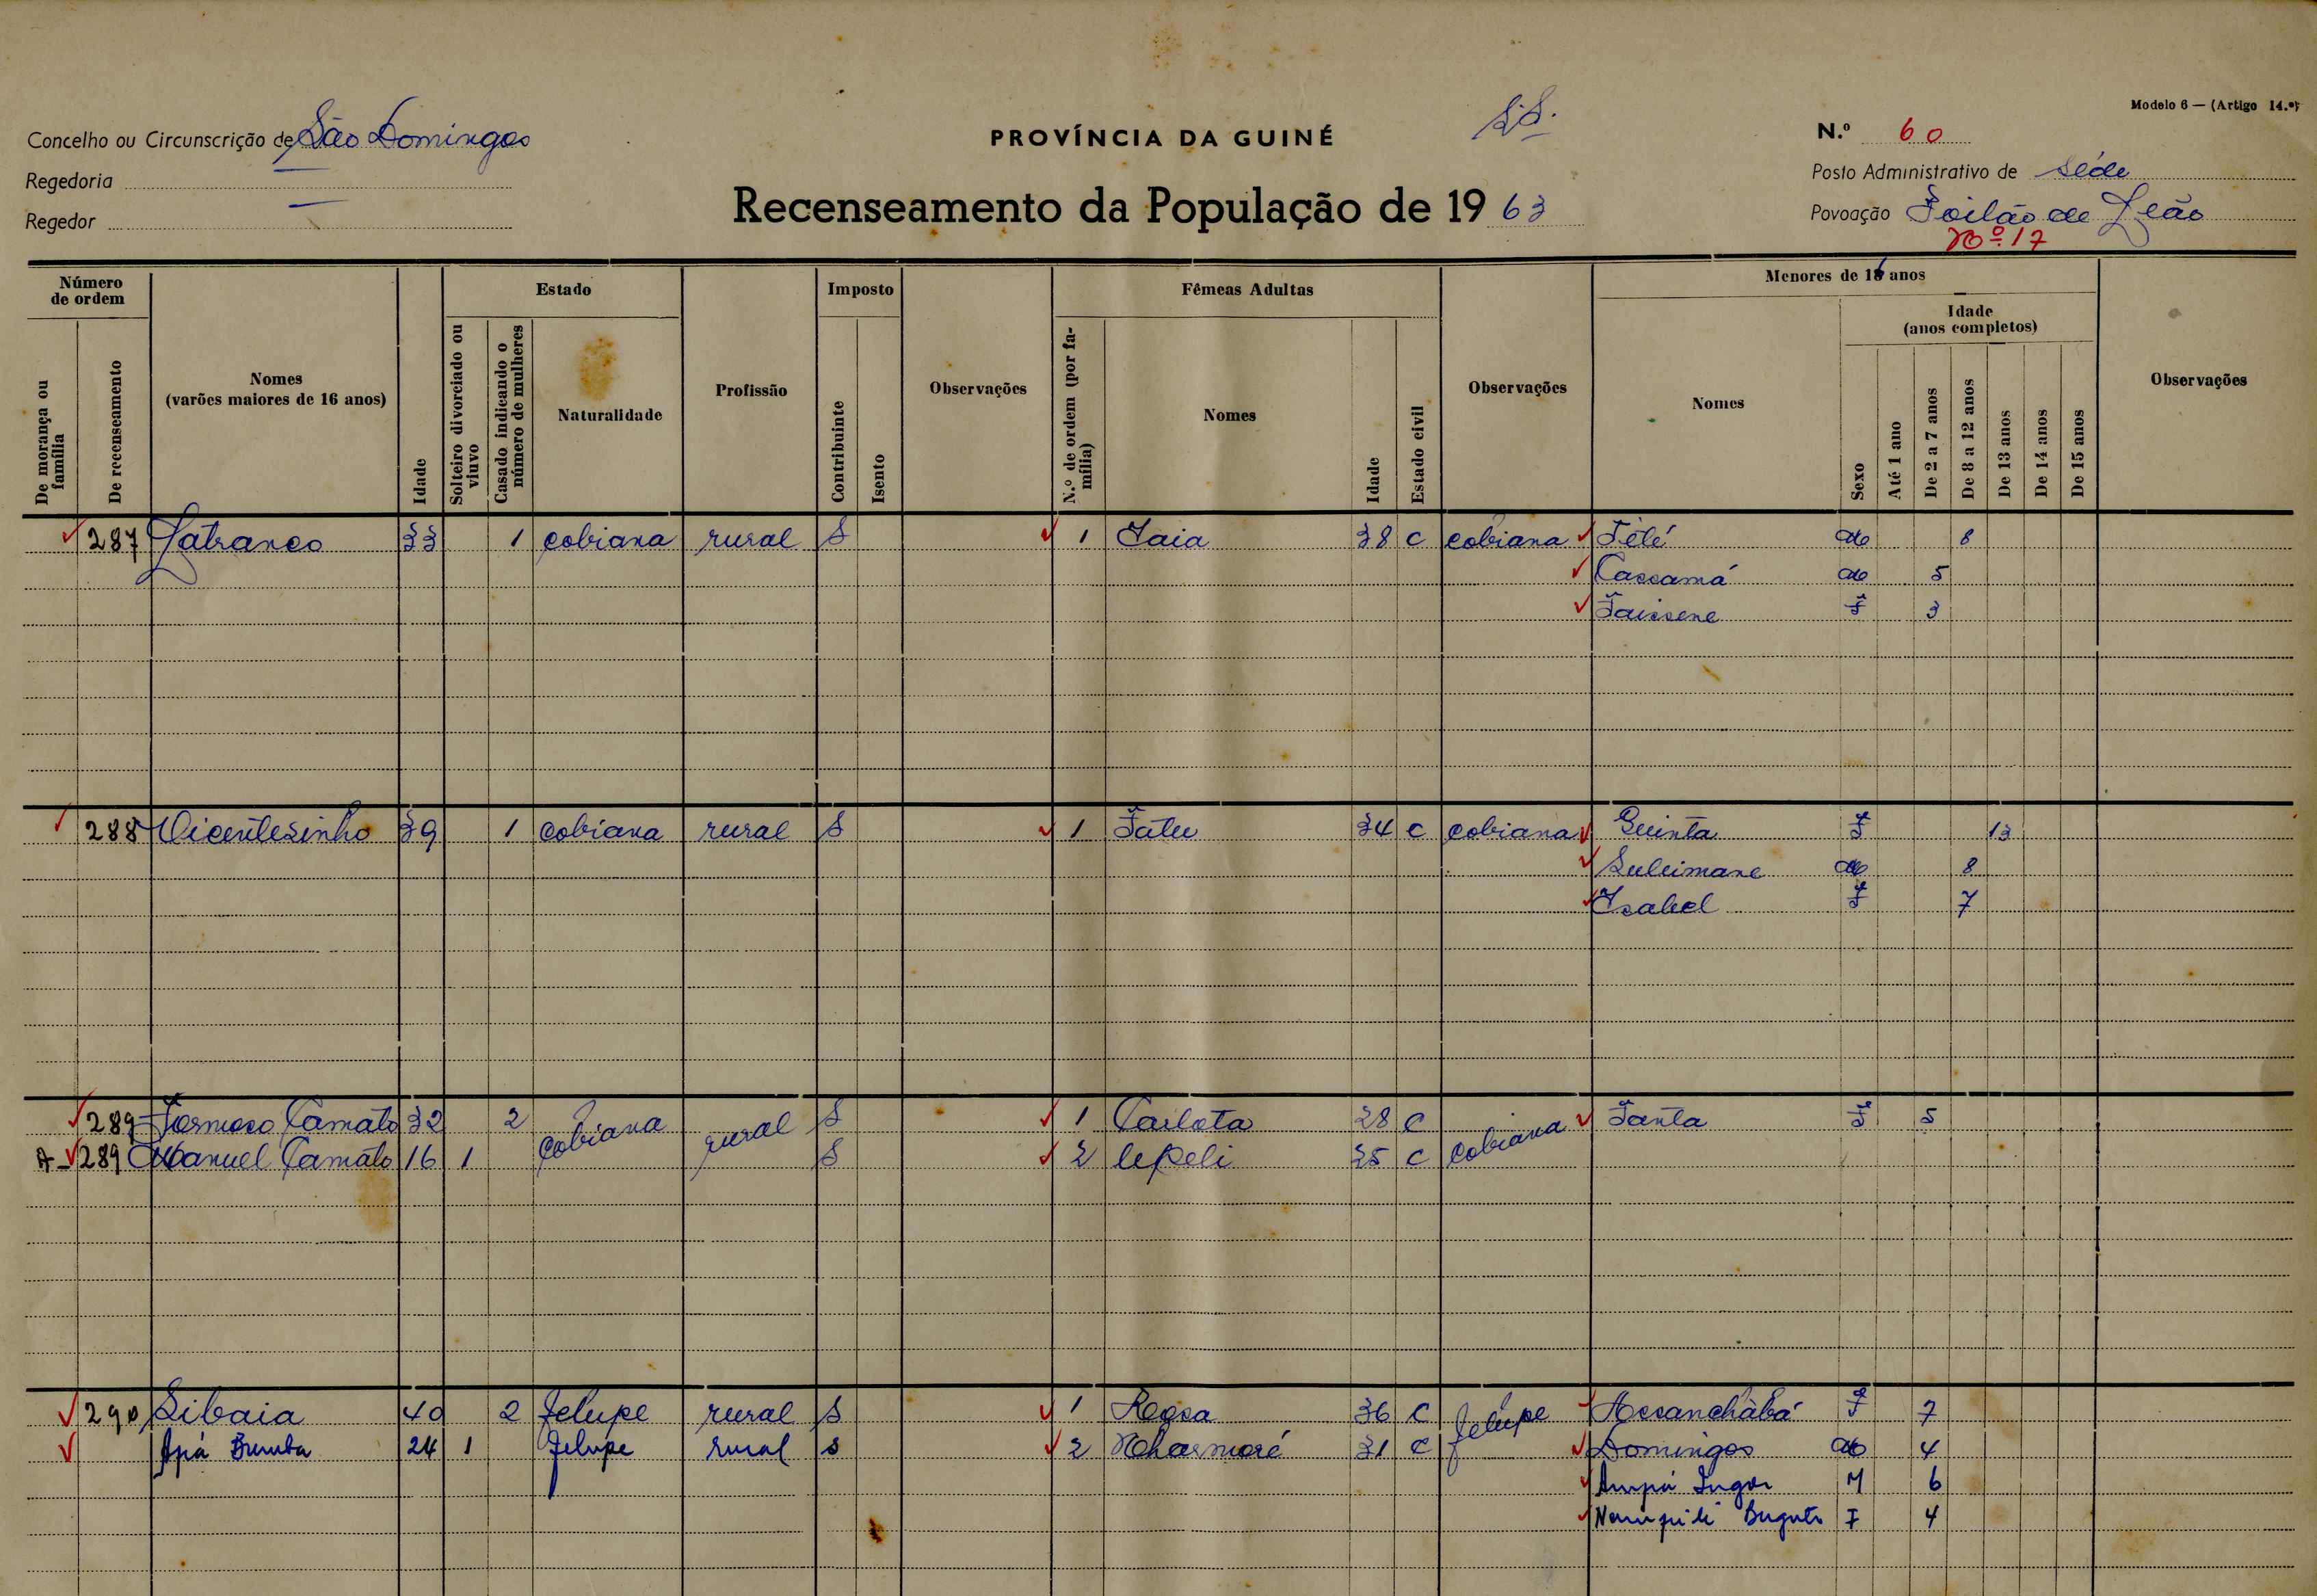 Modelo 6 — (Artigo 14.º)
Concelho ou Circunscrição de São Domingos
PROVÍNCIA DA GUINÉ
N.º 60
Regedoria —
Posto Administrativo de Séde
Regedor —
Recenseamento da População de 1963
Povoação Foilão de Leão
Nº 17
Número de ordem
De morança ou família
De recenseamento
Nomes (varões maiores de 16 anos)
Idade
Estado
Solteiro divorciado ou viuvo
Casado indicando o número de mulheres
Naturalidade
Profissão
Imposto
Contribuinte
Isento
Observações
Fêmeas Adultas
N.º de ordem (por família)
Nomes
Idade
Estado civil
Observações
Menores de 16 anos
Nomes
Sexo
Idade (anos completos)
Até 1 ano
De 2 a 7 anos
De 8 a 12 anos
De 13 anos
De 14 anos
De 15 anos
Observações
287 Latranco 33 1 cobiana rural S 1 Saia 38 C cobiana Télé M 8
Cassamá M 5
Faissene F 3
288 Vicentesinho 39 1 cobiana rural S 1 Fatu 34 C cobiana Guinta F 13
Suleimane M 8
Isabel F 7
289 Formoso Camato 32 2 cobiana rural S 1 Carlota 28 C cobiana Fanta F 5
A-289 Manuel Camato 16 1 S 2 25 C
290 Libaia 40 2 felupe rural S 1 Rosa 36 C felupe F 7
Apá Bumba 24 1 felupe rural S 2 31 C Domingos M 4
Ampá M 6
F 4